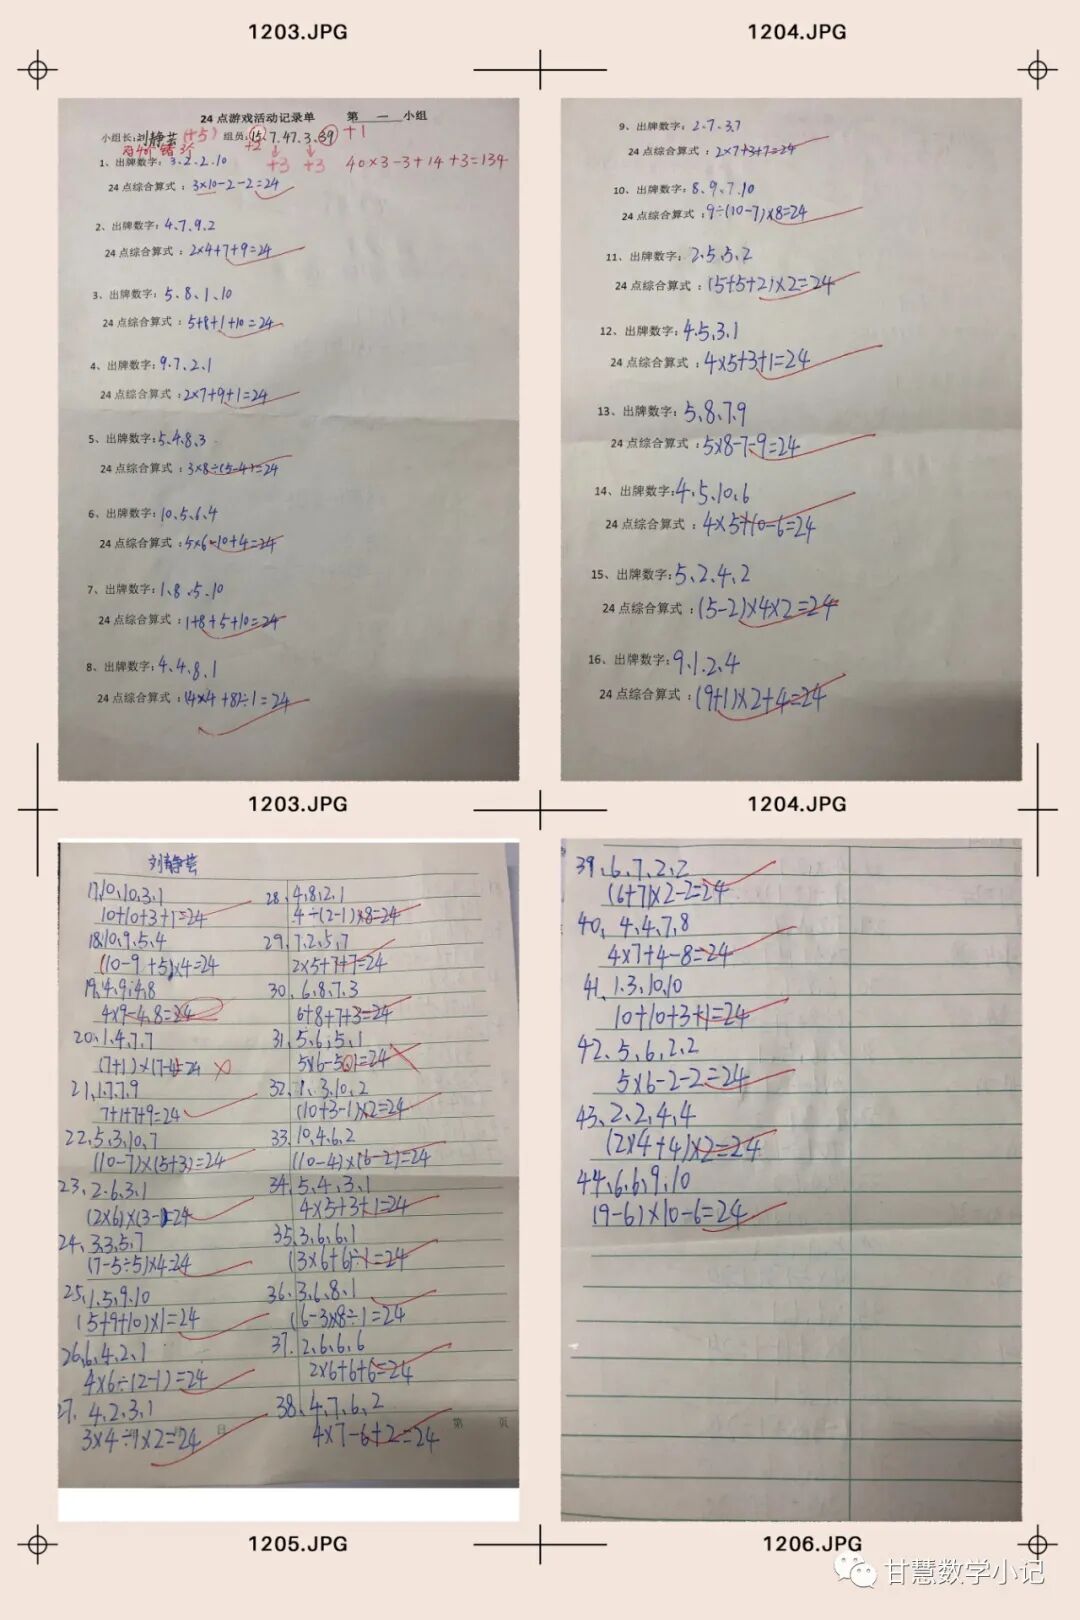 1203.JPG
1204.JPG
24点游戏活动记录单 第一小组
小组长:刘静芸(+5) 组员:15.7.47.3.39 +1
+2 +3 +3 40×3-3+14+3=134
1、出牌数字:3.2.2.10
24点综合算式:3×10-2-2=24
2、出牌数字:4.7.9.2
24点综合算式:2×4+7+9=24
3、出牌数字:5.8.1.10
24点综合算式:5+8+1+10=24
4、出牌数字:9.7.2.1
24点综合算式:2×7+9+1=24
5、出牌数字:5.4.8.3
24点综合算式:3×8÷(5-4)=24
6、出牌数字:10.5.6.4
24点综合算式:5×6-10+4=24
7、出牌数字:1.8.5.10
24点综合算式:1+8+5+10=24
8、出牌数字:4.4.8.1
24点综合算式:(4×4+8)÷1=24
9、出牌数字:2.7.3.7
24点综合算式:2×7+3+7=24
10、出牌数字:8.9.7.10
24点综合算式:9÷(10-7)×8=24
11、出牌数字:2.5.5.2
24点综合算式:(5+5+2)×2=24
12、出牌数字:4.5.3.1
24点综合算式:4×5+3+1=24
13、出牌数字:5.8.7.9
24点综合算式:5×8-7-9=24
14、出牌数字:4.5.10.6
24点综合算式:4×5+10-6=24
15、出牌数字:5.2.4.2
24点综合算式:(5-2)×4×2=24
16、出牌数字:9.1.2.4
24点综合算式:(9+1)×2+4=24
1203.JPG
1204.JPG
刘静芸
17、10、10、3、1
10+10+3+1=24
18、10、9、5、4
(10-9+5)×4=24
19、4、9、4、8
4×9-4、8=24
20、1、4、7、7
(7+1)×(7-4)=24
21、1、7、7、9
7+1+7+9=24
22、5、3、10、7
(10-7)×(5+3)=24
23、2、6、3、1
(2×6)×(3-1)=24
24、3、3、5、7
(7-5÷5)×4=24
25、1、5、9、10
(5+9+10)×1=24
26、6、4、2、1
4×6÷(2-1)=24
27、4、2、3、1
3×4÷1×2=24
28、4、8、2、1
4÷(2-1)×8=24
29、7、2、5、7
2×5+7+7=24
30、6、8、7、3
6+8+7+3=24
31、5、6、5、1
32、1、3、10、2
(10+3-1)×2=24
33、10、4、6、2
(10-4)×(6-2)=24
34、5、4、3、1
4×5+3+1=24
35、3、6、6、1
(3×6+6)÷1=24
36、3、6、8、1
(6-3)×8÷1=24
37、2、6、6、6
2×6+6+6=24
38、4、7、6、2
4×7-6+2=24
第 页
39、6、7、2、2
(6+7)×2-2=24
40、4、4、7、8
4×7+4-8=24
41、1、3、10、10
10+10+3+1=24
42、5、6、2、2
5×6-2-2=24
43、2、2、4、4
(2×4+4)×2=24
44、6、6、9、10
(9-6)×10-6=24
1205.JPG
1206.JPG
甘慧数学小记